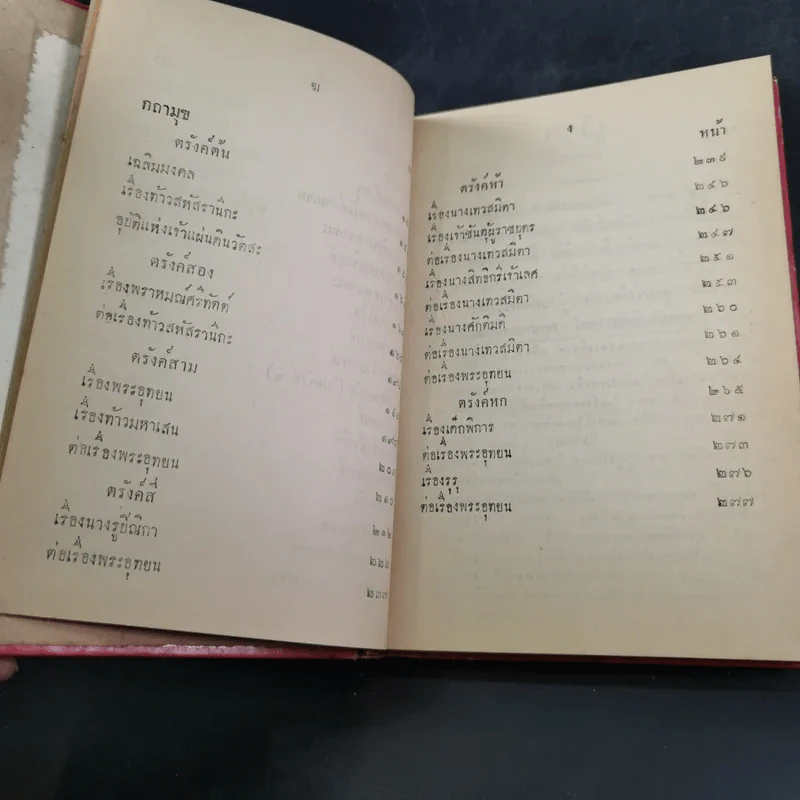 ฆ
กถามุข
ตรังค์ต้น
เฉลิมมงคล
เรื่องท้าวสหัสรานิกะ
อุบัติแห่งเจ้าแผ่นดินวัตสะ
ตรังค์สอง
เรื่องพราหมณ์ศรีทัตต์
ต่อเรื่องท้าวสหัสรานิกะ
ตรังค์สาม
เรื่องพระอุทยน
เรื่องท้าวมหาเสน
ต่อเรื่องพระอุทยน
ตรังค์สี่
๒๑๐
เรื่องนางรูปิณิกา
ต่อเรื่องพระอุทยน
ง
หน้า
ตรังค์ห้า ๒๓๙
เรื่องนางเทวสมิตา ๒๔๖
เรื่องเจ้าชันตุผู้ราชบุตร ๒๔๖
ต่อเรื่องนางเทวสมิตา ๒๔๗
เรื่องนางสิทธิกรีเจ้าเลศ ๒๕๑
ต่อเรื่องนางเทวสมิตา ๒๕๓
เรื่องนางศักติมติ ๒๖๐
ต่อเรื่องนางเทวสมิตา ๒๖๑
ต่อเรื่องพระอุทยน ๒๖๔
ตรังค์หก ๒๖๕
เรื่องเด็กพิการ ๒๗๑
ต่อเรื่องพระอุทยน ๒๗๓
เรื่องรุรุ ๒๗๖
ต่อเรื่องพระอุทยน ๒๗๗